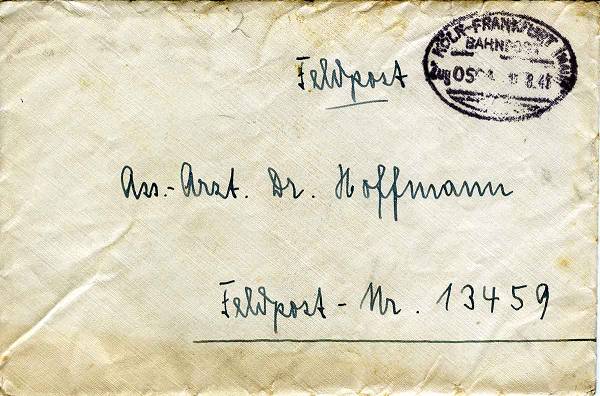 KÖLN-FRANKFURT (MAIN)
BAHNPOST
Zug
8.41
Feldpost
Ass.-Arzt. Dr. Hoffmann
Feldpost-Nr. 13459